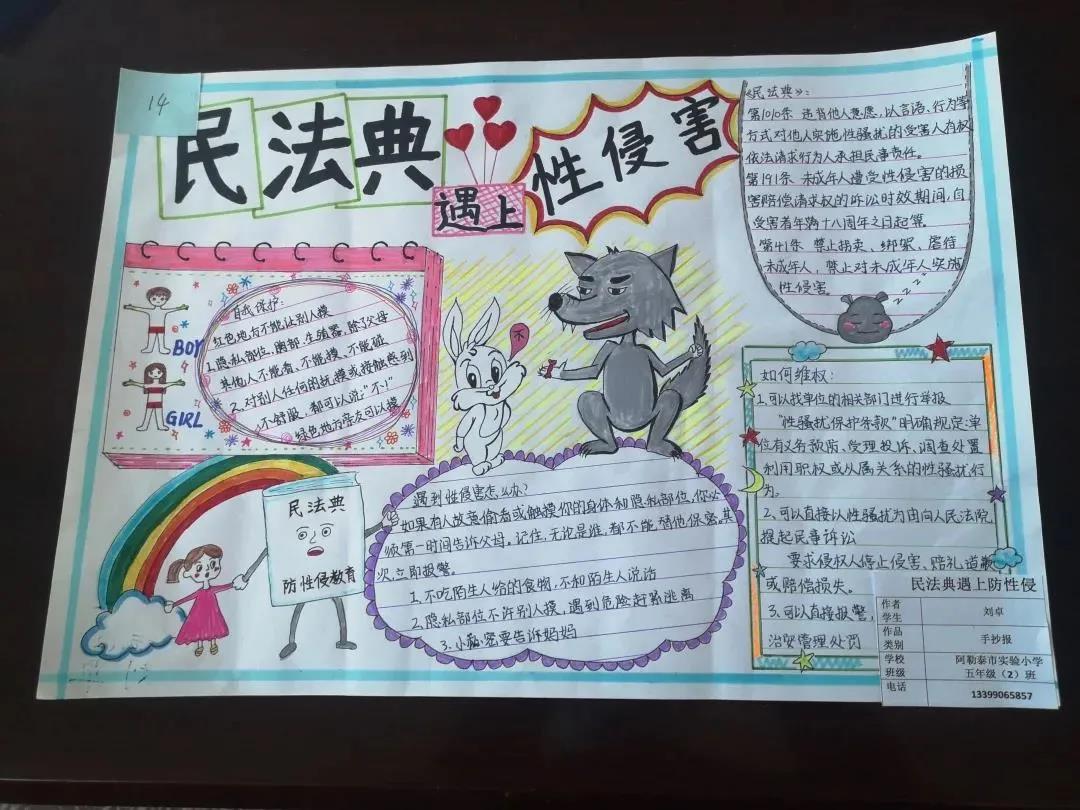 14
民法典
遇上
性侵害
《民法典》:
第1010条 违背他人意愿,以言语、行为等
方式对他人实施性骚扰的受害人有权
依法请求行为人承担民事责任。
第191条 未成年人遭受性侵害的损
害赔偿请求权的诉讼时效期间,自
受害者年满十八周年之日起算。
第41条 禁止拐卖、绑架、虐待
未成年人,禁止对未成年人实施
性侵害。
z z z
自我保护:
红色地方不能让别人摸
1.隐私部位,胸部,生殖器,除了父母
其他人不能看、不能摸、不能碰
2.对别人任何的抚摸或接触感到
不舒服,都可以说:“不!”
绿色地方亲友可以摸
BOY
GIRL
不
民法典
防性侵教育
遇到性侵害怎么办?
如果有人故意偷看或触摸你的身体和隐私部位,你必
须第一时间告诉父母。记住,无论是谁,都不能替他保密,其
次,立即报警。
1.不吃陌生人给的食物,不和陌生人说话
2.隐私部位不许别人摸,遇到危险赶紧逃离
3.小秘密要告诉妈妈
如何维权:
1.可以找单位的相关部门进行举报
“性骚扰保护条款”明确规定:单
位有义务预防、受理投诉、调查处置
利用职权或从属关系的性骚扰行
为。
2、可以直接以性骚扰为由向人民法院
提起民事诉讼
要求侵权人停止侵害、赔礼道歉
或赔偿损失。
3.可以直接报警,
治安管理处罚
民法典遇上防性侵
作者
学生
刘卓
作品
类别
手抄报
学校
班级
阿勒泰市实验小学
五年级(2)班
电话
13399065857